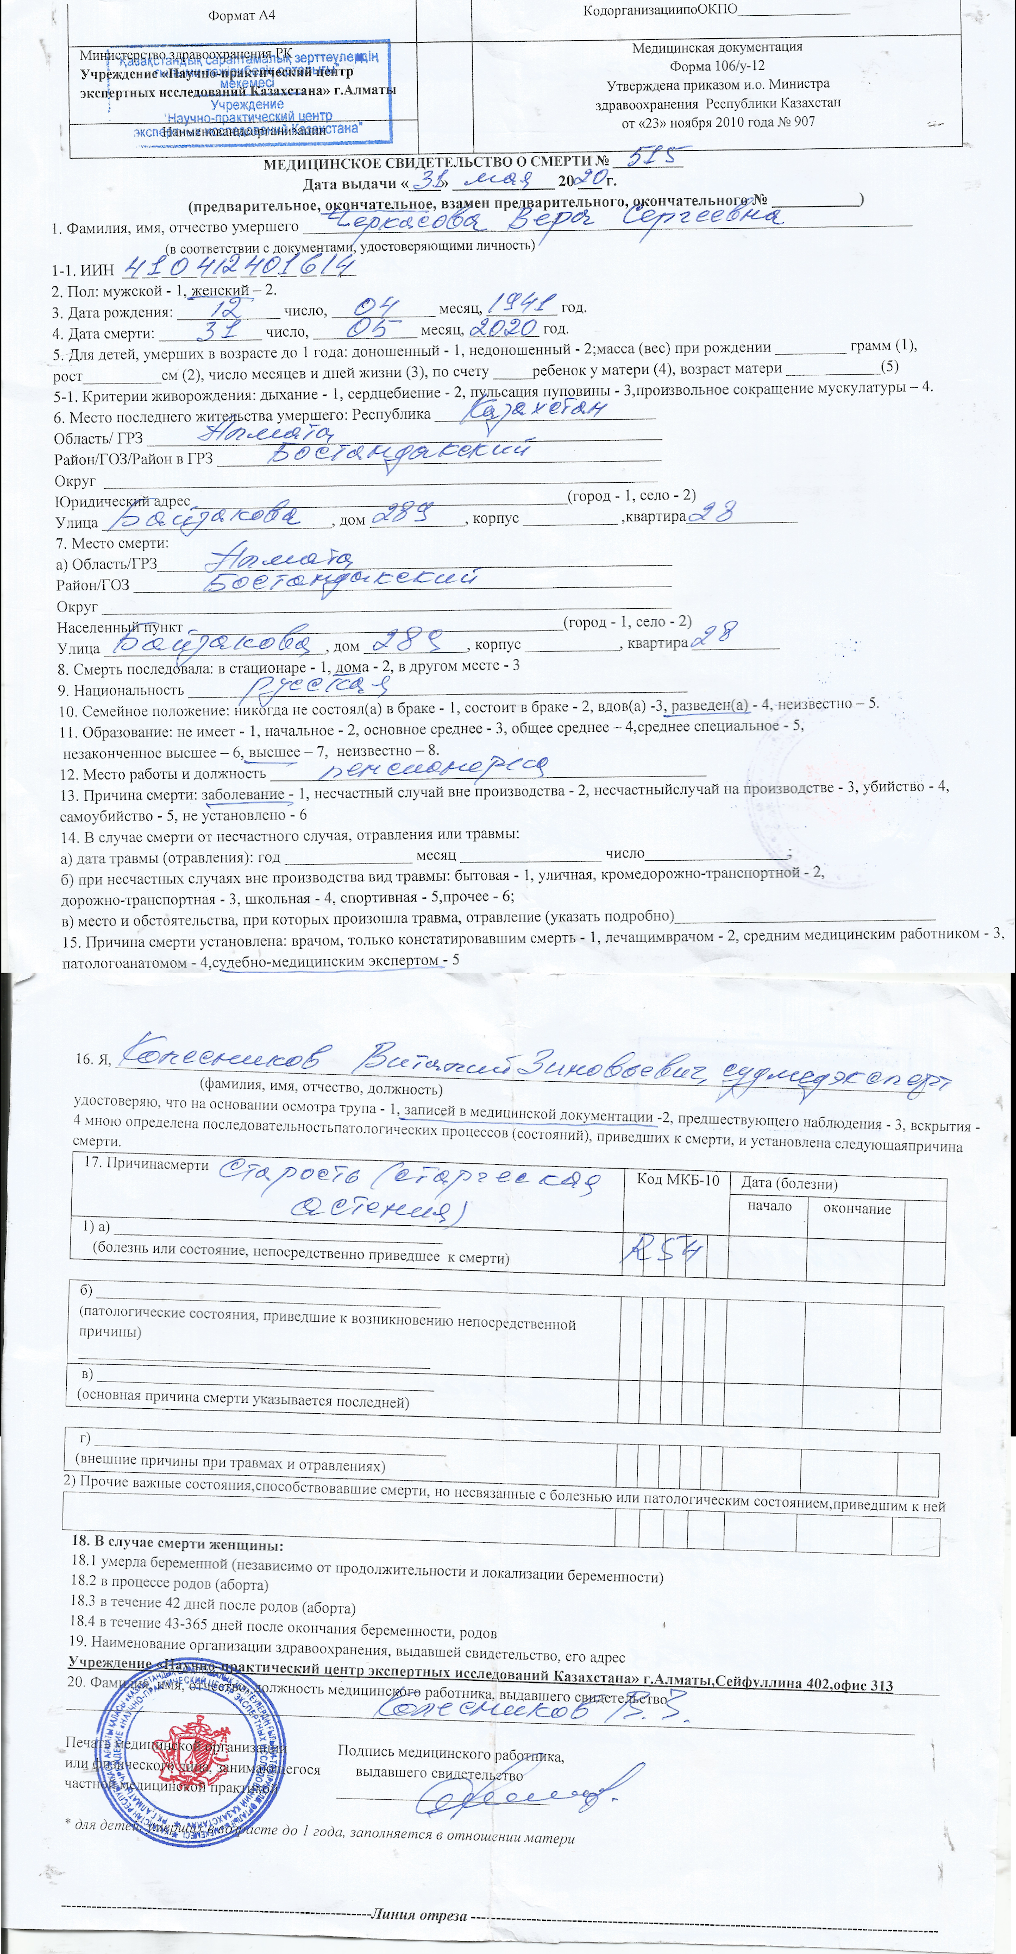 Формат А4
КодорганизациипоОКПО_______________
Министерство здравоохранения РК
Учреждение «Научно-практический центр
экспертных исследований Казахстана» г.Алматы
Наименование организации
Қазақстандық сараптамалық зерттеулердің
мекемесі
Учреждение
"Научно-практический центр
экспертных исследований Казахстана"
Медицинская документация
Форма 106/у-12
Утверждена приказом и.о. Министра
здравоохранения Республики Казахстан
от «23» ноября 2010 года № 907
МЕДИЦИНСКОЕ СВИДЕТЕЛЬСТВО О СМЕРТИ № 515
Дата выдачи «31» мая 2020 г.
(предварительное, окончательное, взамен предварительного, окончательного № ____________)
1. Фамилия, имя, отчество умершего Черкасова Вера Сергеевна
(в соответствии с документами, удостоверяющими личность)
1-1. ИИН 410412401614
2. Пол: мужской - 1, женский – 2.
3. Дата рождения: 12 число, 04 месяц, 1941 год.
4. Дата смерти: 31 число, 05 месяц, 2020 год.
5. Для детей, умерших в возрасте до 1 года: доношенный - 1, недоношенный - 2;масса (вес) при рождении _________ грамм (1),
рост__________см (2), число месяцев и дней жизни (3), по счету _____ребенок у матери (4), возраст матери ____________(5)
5-1. Критерии живорождения: дыхание - 1, сердцебиение - 2, пульсация пуповины - 3,произвольное сокращение мускулатуры – 4.
6. Место последнего жительства умершего: Республика Казахстан
Область/ ГРЗ Алмата
Район/ГОЗ/Район в ГРЗ Бостандыкский
Округ
Юридический адрес (город - 1, село - 2)
Улица Байзакова, дом 289, корпус ____________ ,квартира 28
7. Место смерти:
а) Область/ГРЗ Алмата
Район/ГОЗ Бостандыкский
Округ
Населенный пункт (город - 1, село - 2)
Улица Байзакова, дом 289, корпус ____________, квартира 28
8. Смерть последовала: в стационаре - 1, дома - 2, в другом месте - 3
9. Национальность русская
10. Семейное положение: никогда не состоял(а) в браке - 1, состоит в браке - 2, вдов(а) -3, разведен(а) - 4, неизвестно – 5.
11. Образование: не имеет - 1, начальное - 2, основное среднее - 3, общее среднее – 4,среднее специальное - 5,
незаконченное высшее – 6, высшее – 7, неизвестно – 8.
12. Место работы и должность пенсионерка
13. Причина смерти: заболевание - 1, несчастный случай вне производства - 2, несчастныйслучай на производстве - 3, убийство - 4,
самоубийство - 5, не установлено - 6
14. В случае смерти от несчастного случая, отравления или травмы:
а) дата травмы (отравления): год _________________ месяц ___________________ число___________________;
б) при несчастных случаях вне производства вид травмы: бытовая - 1, уличная, кромедорожно-транспортной - 2,
дорожно-транспортная - 3, школьная - 4, спортивная - 5,прочее - 6;
в) место и обстоятельства, при которых произошла травма, отравление (указать подробно)___________________________________
15. Причина смерти установлена: врачом, только констатировавшим смерть - 1, лечащимврачом - 2, средним медицинским работником - 3,
патологоанатомом - 4,судебно-медицинским экспертом - 5
16. Я, Колесников Виталий Зиновьевич, судмедэксперт
(фамилия, имя, отчество, должность)
удостоверяю, что на основании осмотра трупа - 1, записей в медицинской документации -2, предшествующего наблюдения - 3, вскрытия -
4 мною определена последовательностьпатологических процессов (состояний), приведших к смерти, и установлена следующаяпричина
смерти.
17. Причинасмерти Старость (старческая
астения)
Код МКБ-10
Дата (болезни)
начало
окончание
1) а)
(болезнь или состояние, непосредственно приведшее к смерти)
R54
б)
(патологические состояния, приведшие к возникновению непосредственной
причины)
в)
(основная причина смерти указывается последней)
г)
(внешние причины при травмах и отравлениях)
2) Прочие важные состояния,способствовавшие смерти, но несвязанные с болезнью или патологическим состоянием,приведшим к ней
18. В случае смерти женщины:
18.1 умерла беременной (независимо от продолжительности и локализации беременности)
18.2 в процессе родов (аборта)
18.3 в течение 42 дней после родов (аборта)
18.4 в течение 43-365 дней после окончания беременности, родов
19. Наименование организации здравоохранения, выдавшей свидетельство, его адрес
Учреждение «Научно-практический центр экспертных исследований Казахстана» г.Алматы,Сейфуллина 402.офис 313
20. Фамилия, имя, отчество, должность медицинского работника, выдавшего свидетельство
Колесников В.З.
Печать медицинской организации
или физического лица, занимающегося
частной медицинской практикой
Подпись медицинского работника,
выдавшего свидетельство
* для детей, умерших в возрасте до 1 года, заполняется в отношении матери
Линия отреза